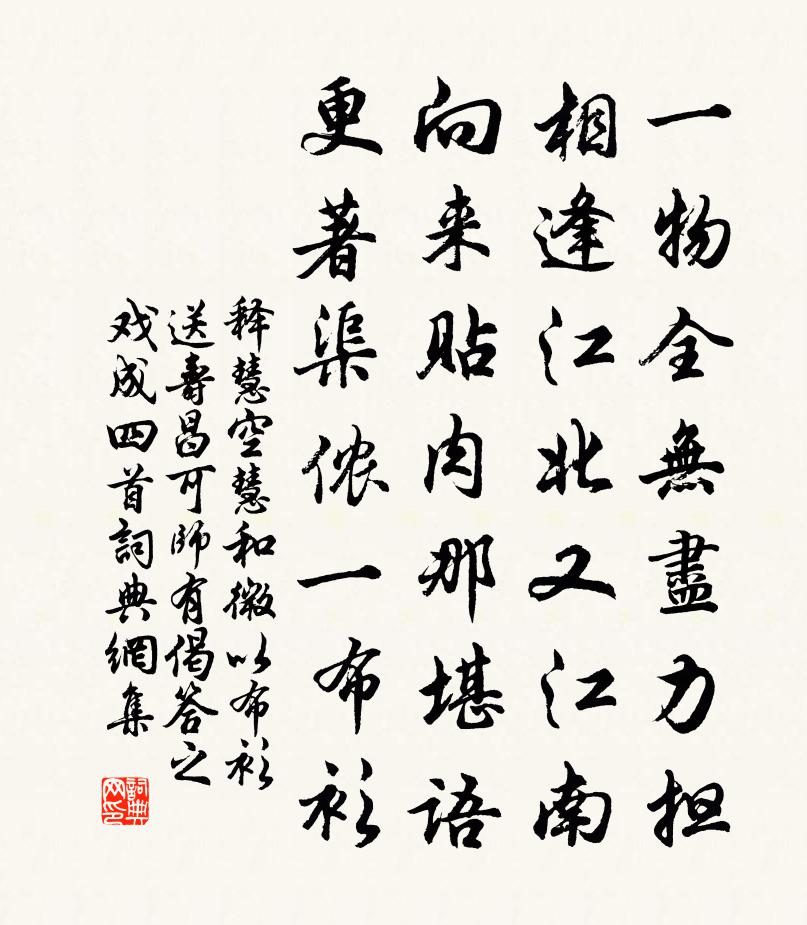 一物全無盡力担
相逢江北又江南
向来貼肉那堪語
更著渠侬一布衫
释慧空慧和微以布衫
送壽昌可師有偈答之
戏成四首詞典網集
詞典网印